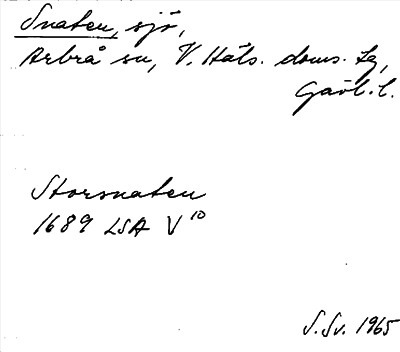 Snaten, sjö,
Arbrå sn, V. Häls. doms. tg,
Gävl. l.
Storsnaten
1689 LSA V 10
S. Sv. 1965